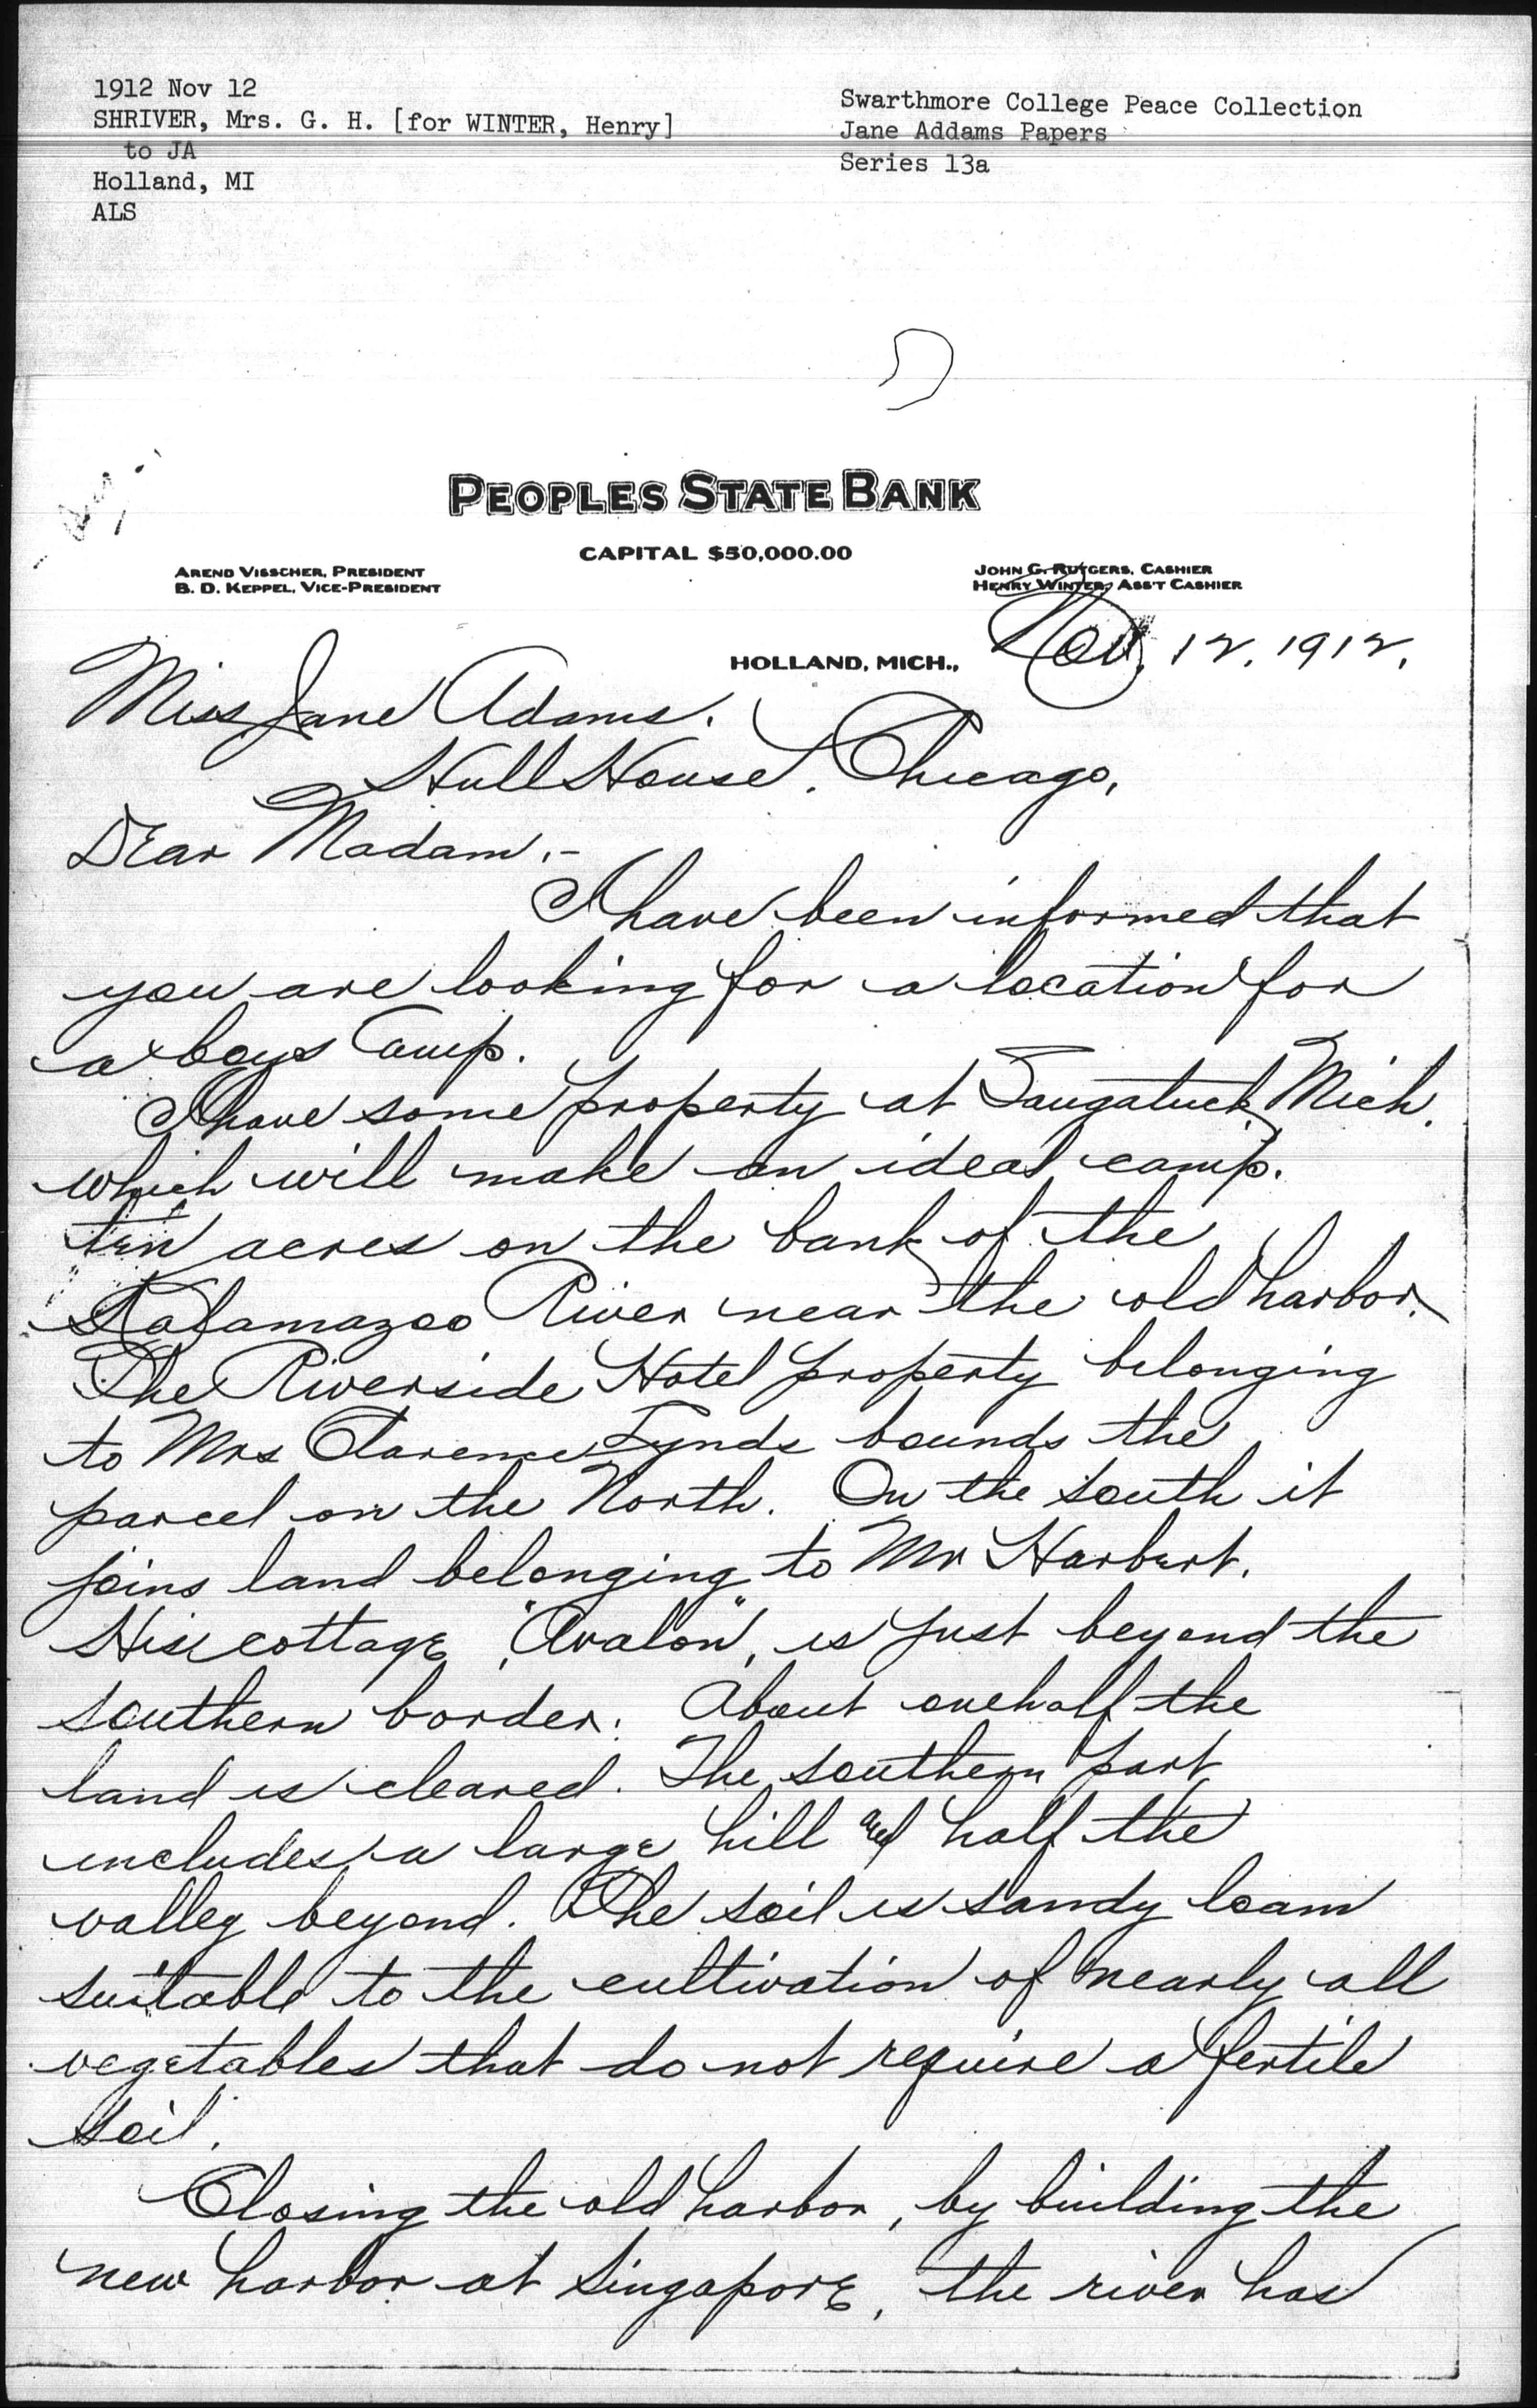 1912 Nov 12
SHRIVER, Mrs. G. H. [for WINTER, Henry]
to JA
Holland, MI
ALS
Swarthmore College Peace Collection
Jane Addams Papers
Series 13a
PEOPLES STATE BANK
CAPITAL $50,000.00
AREND VISSCHER, PRESIDENT
B. D. KEPPEL, VICE-PRESIDENT
JOHN G. RUTGERS, CASHIER
HENRY WINTER, ASS'T CASHIER
HOLLAND, MICH., Nov. 12. 1912.
Miss Jane Adams.
Hull House, Chicago,
Dear Madam.-
I have been informed that
you are looking for a location for
a boys Camp.
I have some property at Saugatuck Mich.
which will make an ideal camp.
ten acres on the bank of the
Kalamazoo River near the old harbor.
The Riverside Hotel property belonging
to Mrs Clarence Lynds bounds the
parcel on the North. On the south it
joins land belonging to Mr Harbert.
His cottage, "Avalon", is just beyond the
southern border. About onehalf the
land is cleared. The southern part
includes a large hill and half the
valley beyond. The soil is sandy loam
suitable to the cultivation of nearly all
vegetables that do not require a fertile
soil.
Closing the old harbor, by building the
new harbor at Singapore, the river has